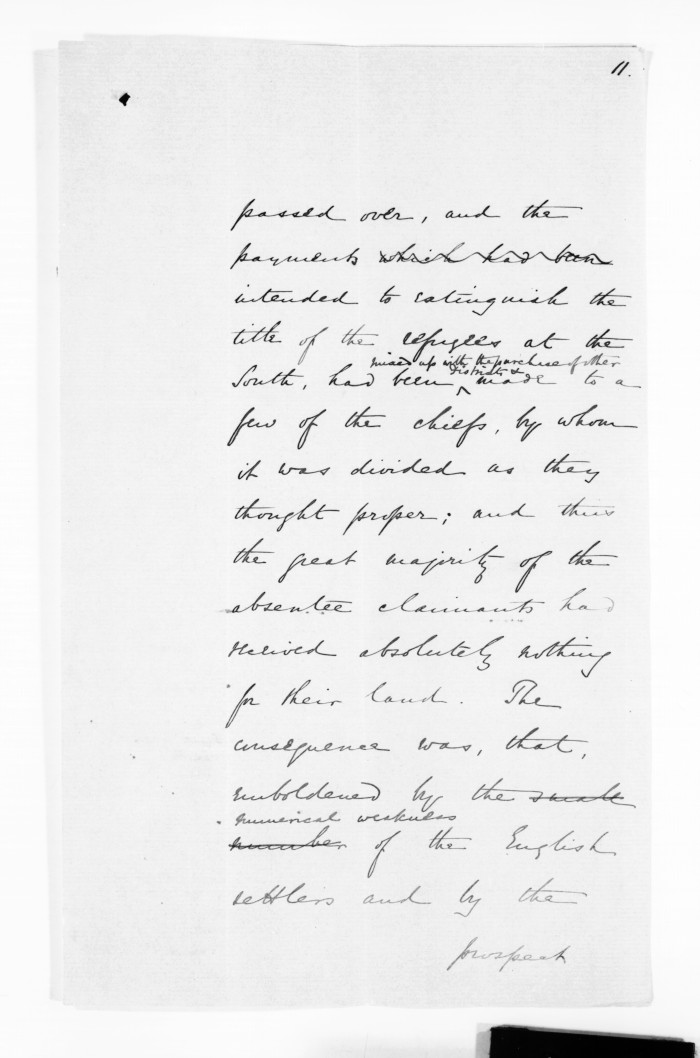 11.
passed over, and the
payments which had been
intended to extinguish the
title of the refugees at the
mixed up with the purchase of other
districts &
South, had been ^ made to a
few of the chiefs, by whom
it was divided as they
thought proper; and thus
the great majority of the
absentee claimants had
received absolutely nothing
for their land. The
consequence was, that,
emboldened by the small
numerical weakness
number of the English
settlers and by the
prospect